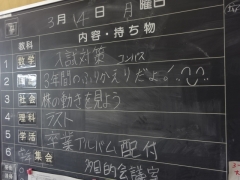 3月14日 月曜日
教科 内容・持ち物
1 数学 入試対策 コンパス
2 3年間のふりかえりだよ!
3 社会 株の動きを見よう
4 理科 ラスト
5 学活 卒業アルバム配付
6 集会 多目的会議室